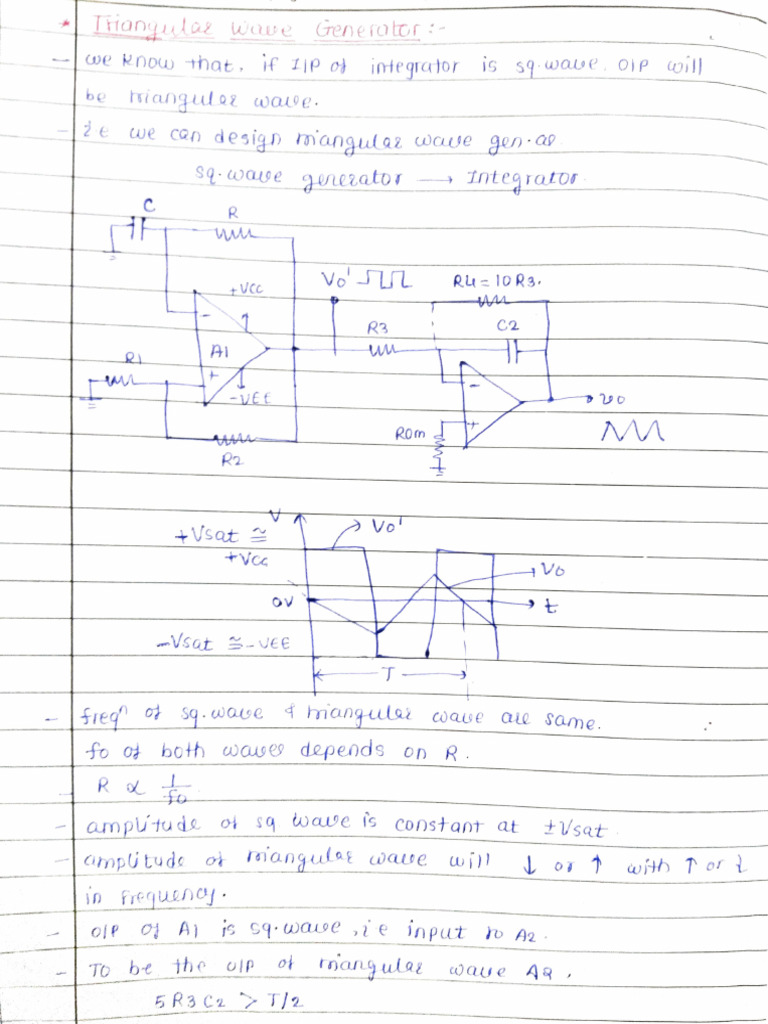 * Triangular Wave Generator :-
- we know that, if I/P of integrator is sq.wave. O/P will
be triangular wave.
- i.e we can design triangular wave gen. as
sq.wave generator → Integrator.
C
R
+VCC
Vo'
R4 = 10 R3.
-
R3
C2
R1
A1
+
-VEE
-
vo
Rom
+
R2
V
Vo'
+Vsat ≅
+Vcc
Vo
0V
t
-Vsat ≅ -VEE
T
- freqⁿ of sq.wave & triangular wave are same.
fo of both waves depends on R.
R ∝ 1/fo
- amplitude of sq wave is constant at ±Vsat.
- amplitude of triangular wave will ↓ or ↑ with ↑ or ↓
in frequency.
- O/P of A1 is sq.wave, i.e input to A2.
- To be the O/P of triangular wave A2,
5 R3 C2 > T/2